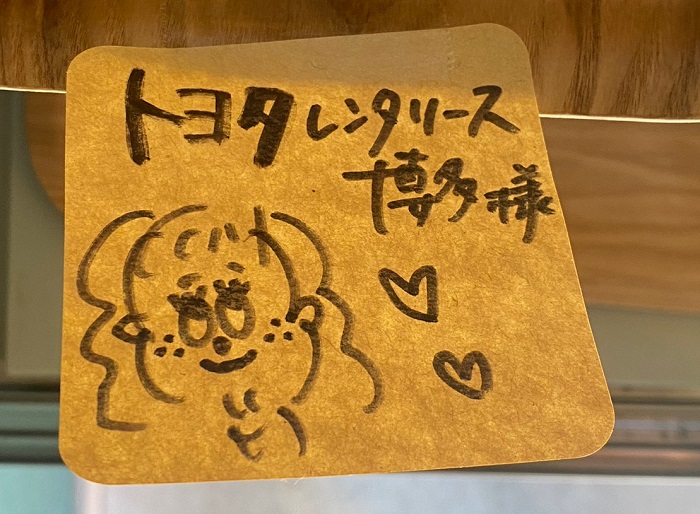 トヨタレンタリース
博多様